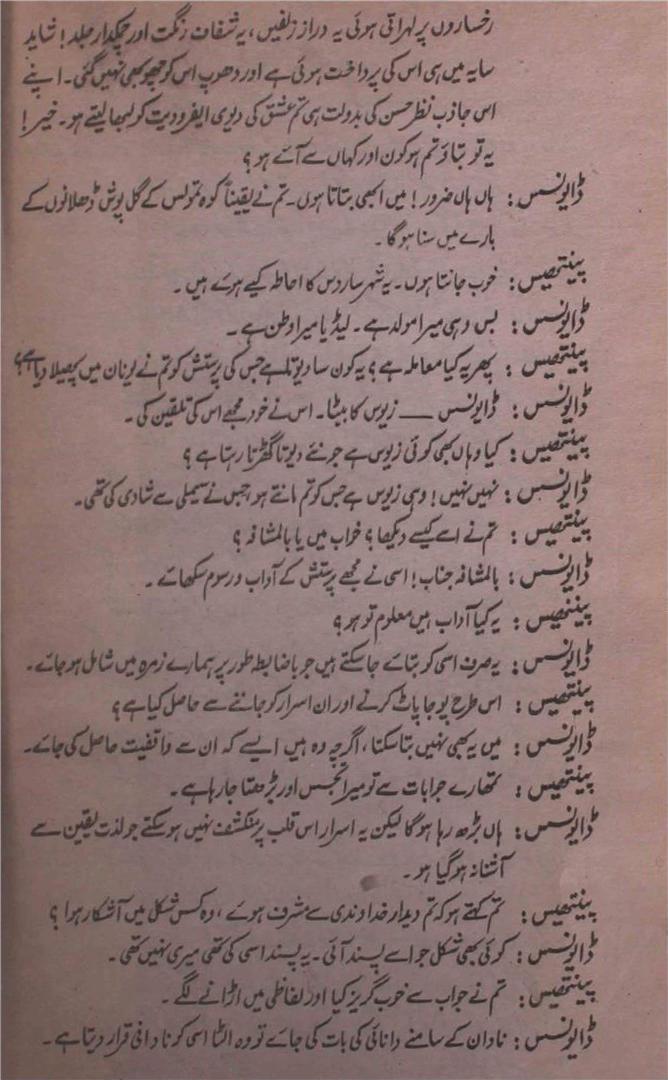 رخساروں پر لہراتی ہوئی یہ دراز زلفیں، یہ شفاف رنگت اور چمکدار جلد! شاید
سایہ میں ہی اس کی پرداخت ہوئی ہے اور دھوپ اس کو چھو بھی نہیں گئی۔ اپنے
اس جاذب نظر حسن کی بدولت ہی تم عشق کی دیوی ایفرودیت کو لبھا لیتے ہو۔ خیر!
یہ تو بتاؤ تم ہو کون اور کہاں سے آئے ہو؟
ڈایونسس: ہاں ہاں ضرور! میں ابھی بتاتا ہوں۔ تم نے یقیناً کوہ تمولس کے گل پوش ڈھلانوں کے
بارے میں سنا ہوگا۔
پینتھیس: خوب جانتا ہوں۔ یہ شہر ساردس کا احاطہ کیے ہوئے ہیں۔
ڈایونسس: بس وہی میرا مولد ہے۔ لیڈیا میرا وطن ہے۔
پینتھیس: پھر یہ کیا معاملہ ہے؟ یہ کون سا دیوتا ہے جس کی پرستش کو تم نے یونان میں پھیلا دیا ہے؟
ڈایونسس: ڈایونسس — زیوس کا بیٹا۔ اس نے خود مجھے اس کی تلقین کی۔
پینتھیس: کیا وہاں بھی کوئی زیوس ہے جو نئے دیوتا گھڑتا رہتا ہے؟
ڈایونسس: نہیں نہیں! وہی زیوس ہے جس کو تم مانتے ہو، جس نے سیملی سے شادی کی تھی۔
پینتھیس: تم نے اسے کیسے دیکھا؟ خواب میں یا بالمشافہ؟
ڈایونسس: بالمشافہ جناب! اسی نے مجھے پرستش کے آداب و رسوم سکھائے۔
پینتھیس: یہ کیا آداب ہیں معلوم تو ہو؟
ڈایونسس: یہ صرف اسی کو بتائے جا سکتے ہیں جو باضابطہ طور پر ہمارے زمرہ میں شامل ہو جائے۔
پینتھیس: اس طرح پوجا پاٹ کرنے اور ان اسرار کو جاننے سے حاصل کیا ہے؟
ڈایونسس: میں یہ بھی نہیں بتا سکتا، اگرچہ وہ ہیں ایسے کہ ان سے واقفیت حاصل کی جائے۔
پینتھیس: تمھارے جوابات سے تو میرا تجسس اور بڑھتا جا رہا ہے۔
ڈایونسس: ہاں بڑھ رہا ہوگا لیکن یہ اسرار اس قلب پر منکشف نہیں ہو سکتے جو لذت یقین سے
آشنا نہ ہو گیا ہو۔
پینتھیس: تم کہتے ہو کہ تم دیدار خداوندی سے مشرف ہوئے، وہ کس شکل میں آشکار ہوا؟
ڈایونسس: کوئی بھی شکل جو اسے پسند آئی۔ یہ پسند اسی کی تھی میری نہیں تھی۔
پینتھیس: تم نے جواب سے خوب گریز کیا اور لفاظی میں اڑانے لگے۔
ڈایونسس: نادان کے سامنے دانائی کی بات کی جائے تو وہ الٹا اسی کو نادانی قرار دیتا ہے۔